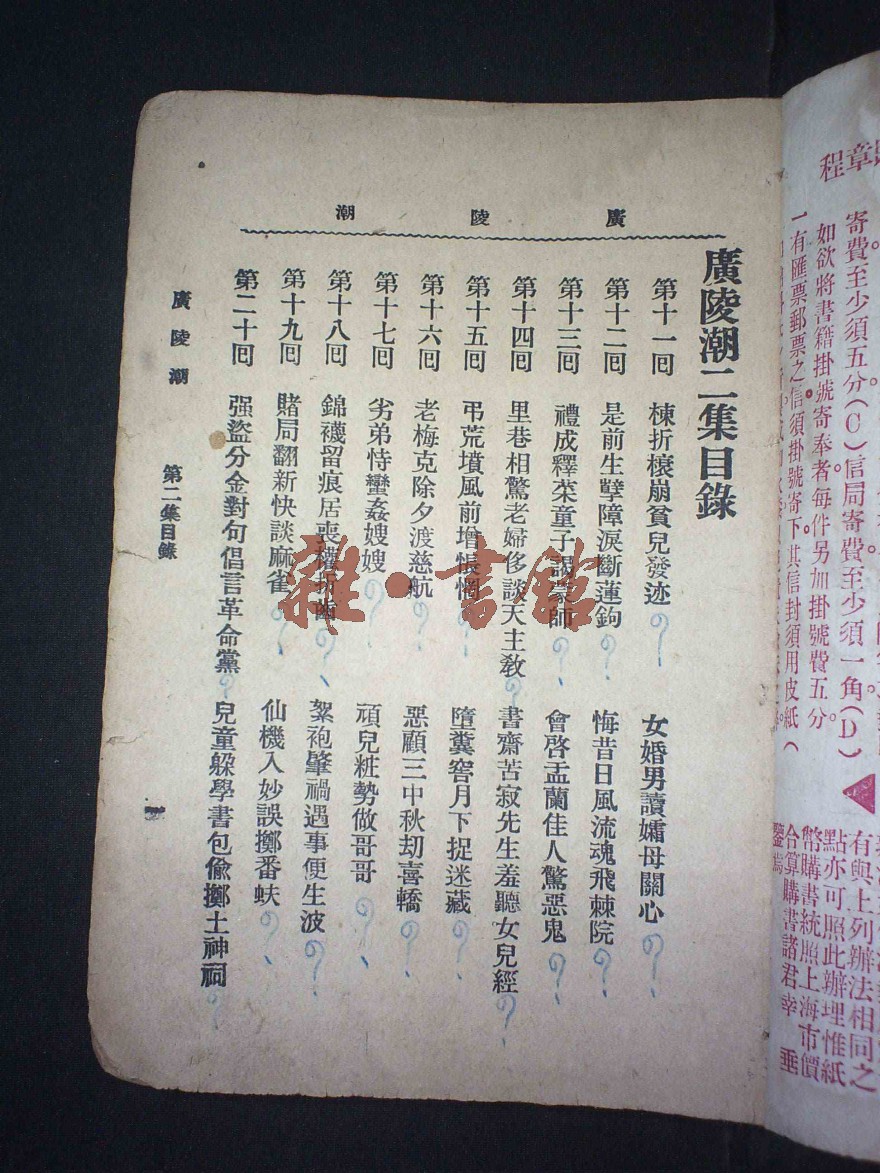 廣陵潮
廣陵潮二集目錄
第十一回 棟折榱崩貧兒發迹 女婚男讀孀母關心
第十二回 是前生孽障淚斷蓮鉤 悔昔日風流魂飛棘院
第十三回 禮成釋菜童子謁蒙師 會啓盂蘭佳人驚惡鬼
第十四回 里巷相驚老婦侈談天主教 書齋苦寂先生羞聽女兒經
第十五回 弔荒墳風前增悵惘 墮糞窖月下捉迷藏
第十六回 老梅克除夕渡慈航 惡顧三中秋刧喜轎
第十七回 劣弟恃蠻姦嫂嫂 頑兒粧勢做哥哥
第十八回 錦襪留痕居喪權折齒 絮袍肇禍遇事便生波
第十九回 賭局翻新快談麻雀 仙機入妙誤擲番蚨
第二十回 强盜分金對句倡言革命黨 兒童躲學書包偷擲土神祠
廣陵潮 第二集目錄 一
雜·書館
章程
寄費至少須五分(C)信局寄費至少須一角(D)
如欲將書籍掛號寄奉者每件另加掛號費五分
一有匯票郵票之信須掛號寄下其信封須用皮紙(
有與上列辦法相同之
點亦可照此辦理惟紙
幣購書統照上海市價
合算購書諸君幸垂
鑒焉